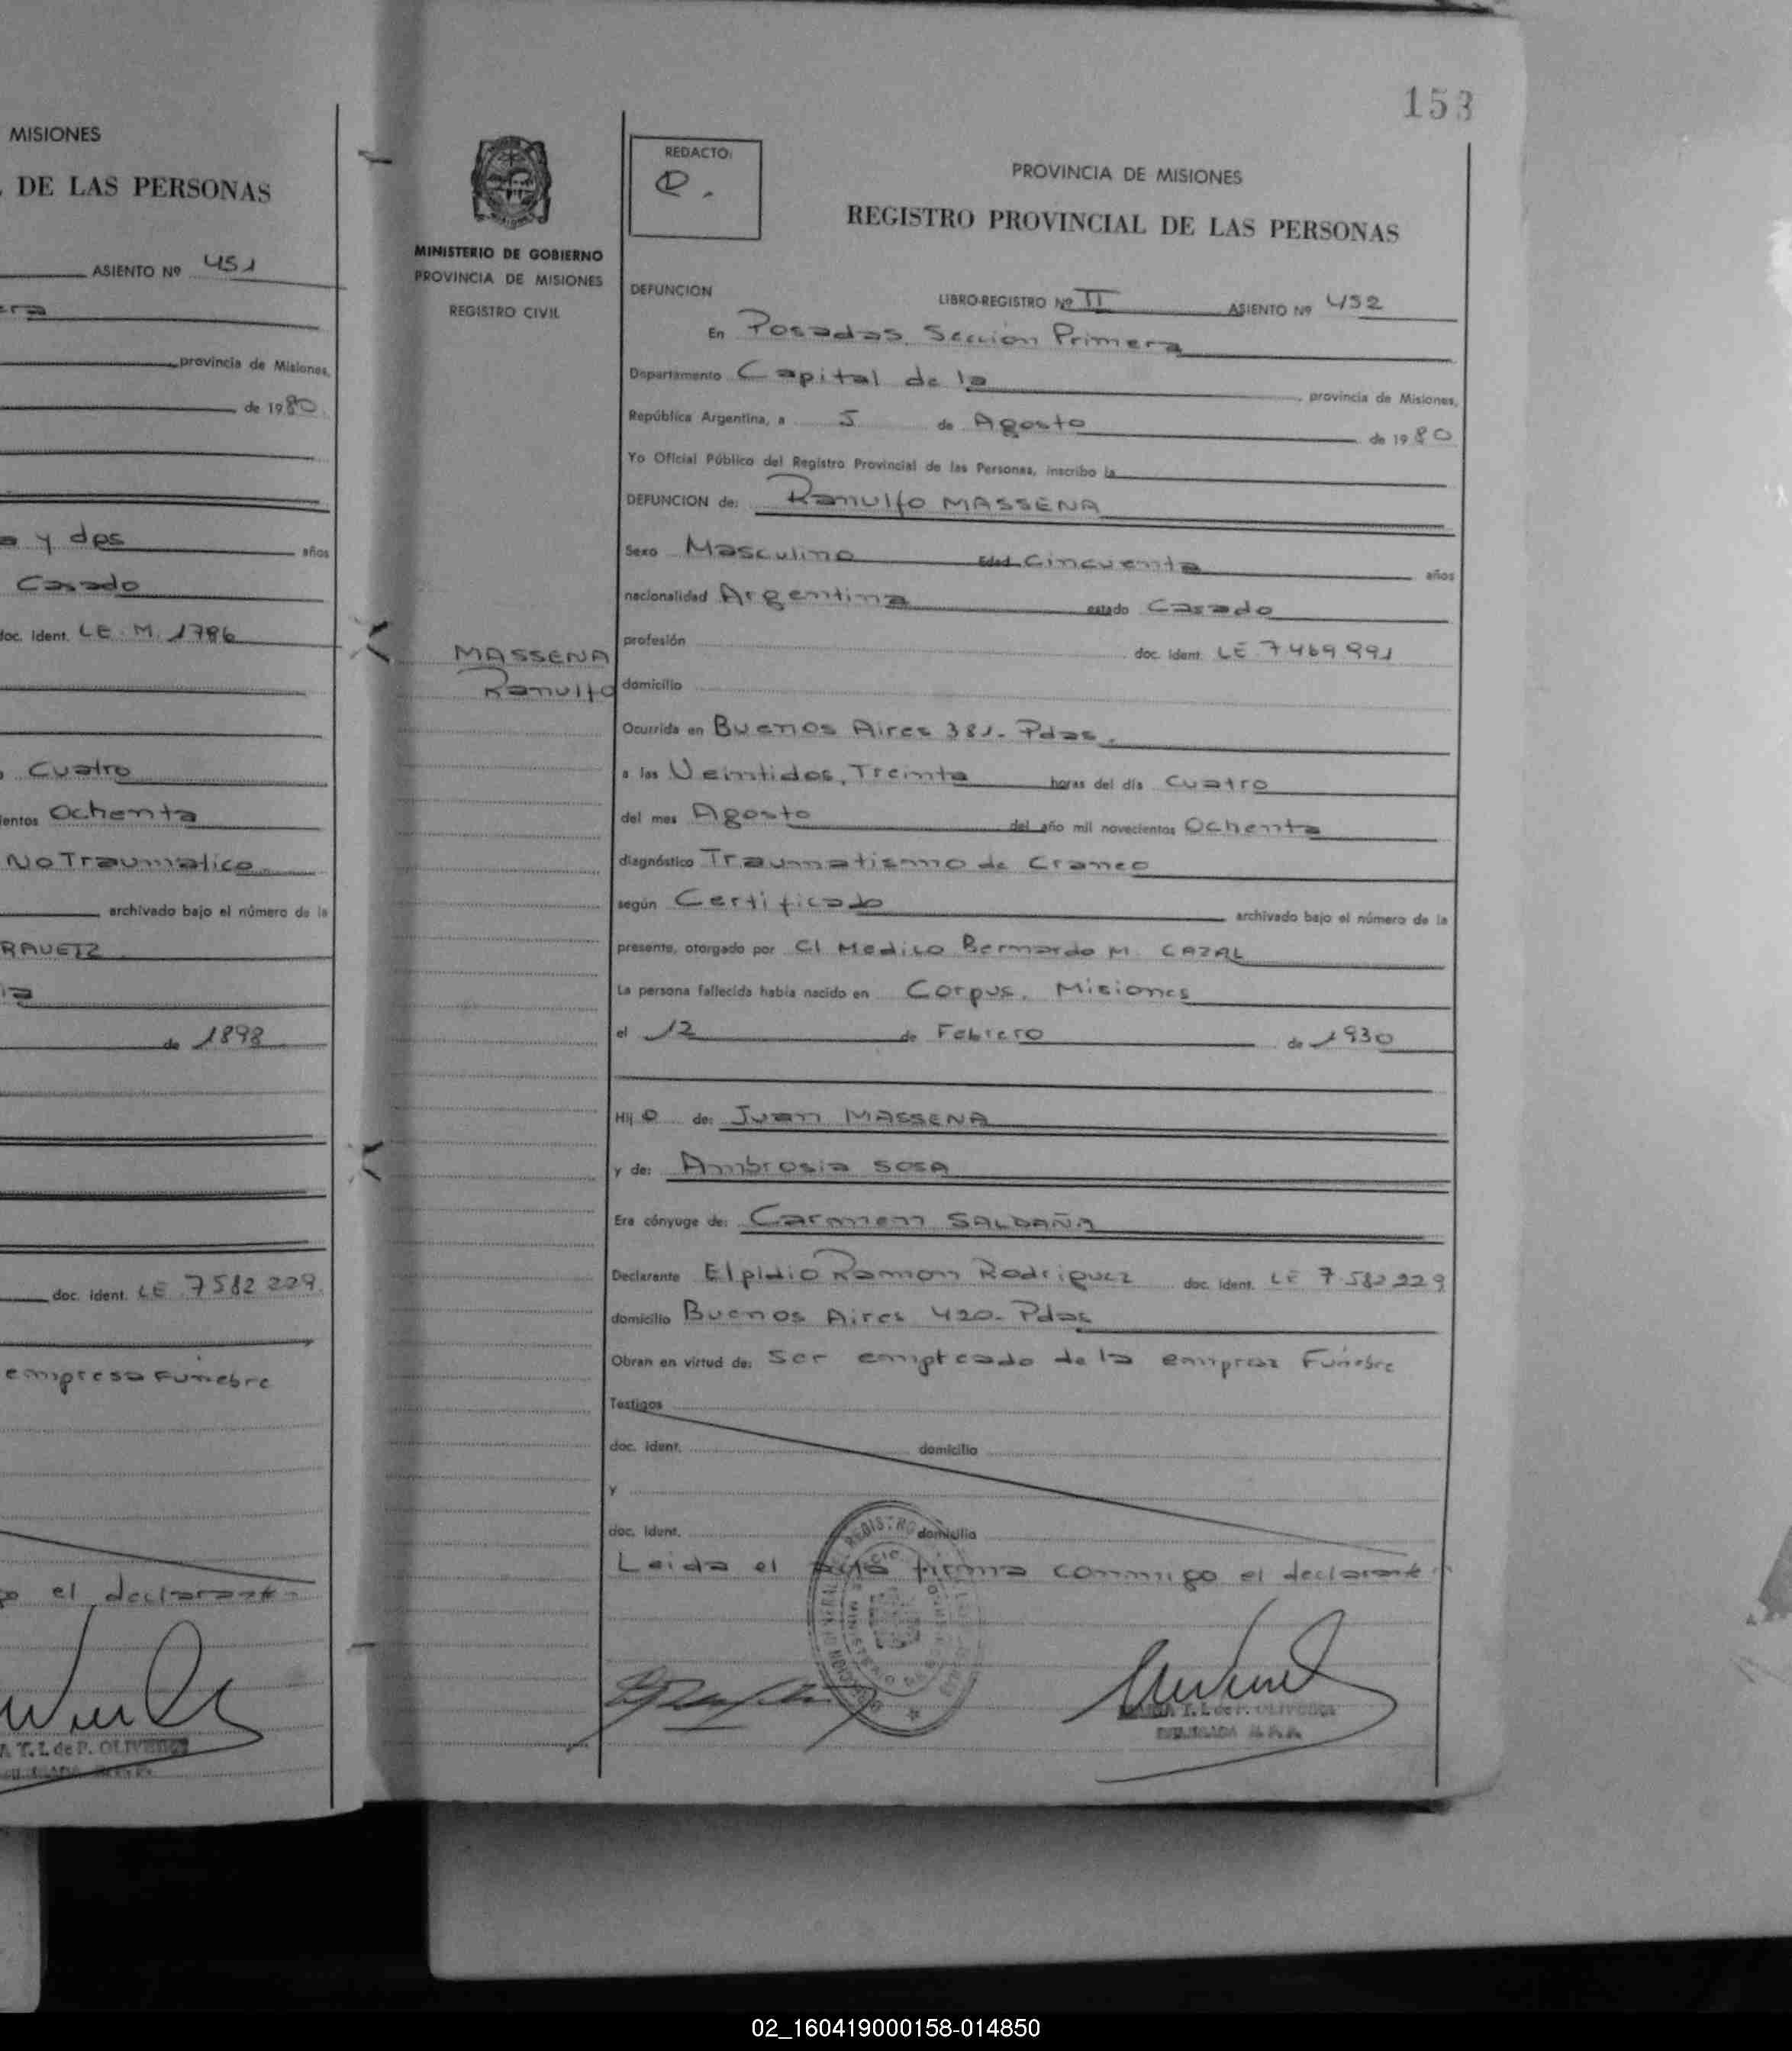 MISIONES
DE LAS PERSONAS
ASIENTO Nº 451
provincia de Misiones,
de 1980
y dos años
Casado
doc. Ident. LE. M. 1786
Cuatro
ientos Ochenta
No Traumatico
archivado bajo el número de la
RAVETZ
de 1898
doc. Ident. LE 7582 229.
empresa Funebre
el declarante
T. I. de P. OLIVEIRA
153
MINISTERIO DE GOBIERNO
PROVINCIA DE MISIONES
REGISTRO CIVIL
MASSENA
Ranulfo
REDACTO:
PROVINCIA DE MISIONES
REGISTRO PROVINCIAL DE LAS PERSONAS
DEFUNCION LIBRO-REGISTRO Nº II ASIENTO Nº 452
En Posadas, Sección Primera
Departamento Capital de la provincia de Misiones,
República Argentina, a 5 de Agosto de 1980
Yo Oficial Público del Registro Provincial de las Personas, inscribo la
DEFUNCION de: Ranulfo MASSENA
Sexo Masculino Edad Cincuenta años
nacionalidad Argentina estado Casado
profesión doc. Ident. LE 7469991
domicilio
Ocurrida en Buenos Aires 381- Pdas.
a las Veintidos, Treinta horas del día Cuatro
del mes Agosto del año mil novecientos Ochenta
diagnóstico Traumatismo de Craneo
según Certificado archivado bajo el número de la
presente, otorgado por El Medico Bernardo M. CAZAL
La persona fallecida había nacido en Corpus, Misiones
el 12 de Febrero de 1930
Hij o de: Juan MASSENA
y de: Ambrosia SOSA
Era cónyuge de: Carmen SALDAÑA
Declarante Elpidio Ramon Rodriguez doc. Ident. LE 7.582229
domicilio Buenos Aires 420- Pdas
Obran en virtud de: Ser empleado de la empresa Funebre
Testigos
doc. Ident. domicilio
y
doc. Ident. domicilio
Leida el acta firma conmigo el declarante
T. I. de P. OLIVEIRA
02_160419000158-014850